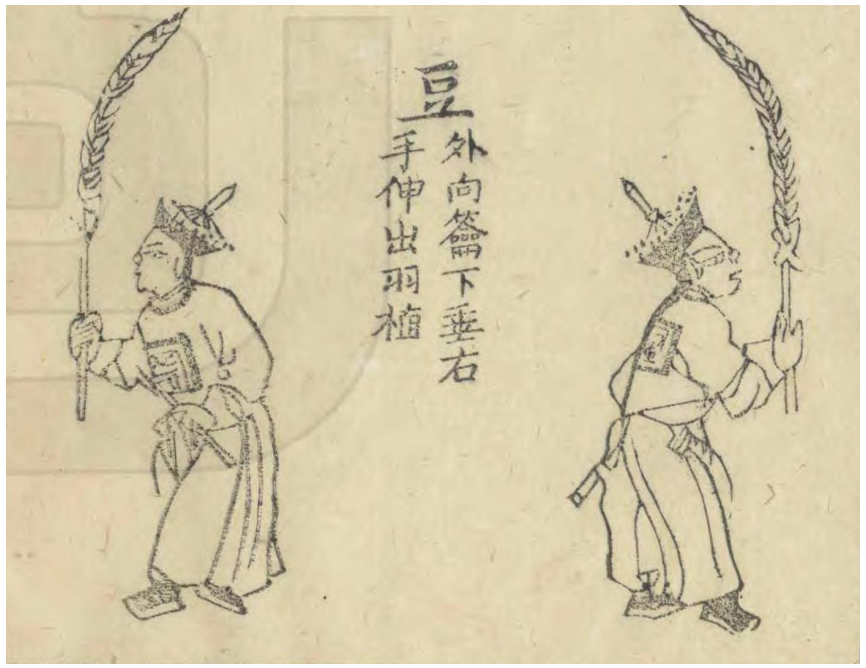 豆
外向籥下垂右
手伸出羽植